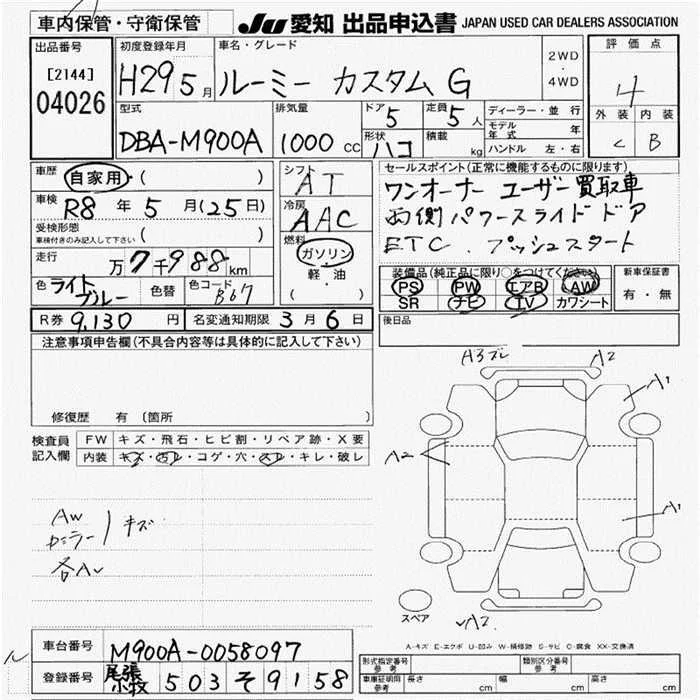 車内保管・守衛保管
JU 愛知 出品申込書 JAPAN USED CAR DEALERS ASSOCIATION
出品番号
[2144]
04026
初度登録年月
H29 5月
車名・グレード
ルーミー カスタム G
2WD
・
4WD
評価点
4
外装 内装
C B
型式
DBA-M900A
排気量
1000 cc
ドア
5
定員
5 人
形状
ハコ
積載
kg
ディーラー・並行
モデル年式 年
ハンドル 左・右
車歴
自家用・( )
車検
R8 年 5 月 (25日)
受検形態
車検付きのみ記入して下さい ( )
走行
万 7 千 988 km
色 ライトブルー 色替 色コード B67
シフト
AT
冷房
AAC
燃料
ガソリン
・
軽・油
( )
セールスポイント(正常に機能するものに限ります)
ワンオーナー ユーザー買取車
両側パワースライドドア
ETC . プッシュスタート
装備品(純正品に限り○をつけてください)
PS PW エアB AW
SR ナビ TV カワシート
新車保証書
有・無
R券 9,130 円 名変通知期限 3 月 6 日
後日品
注意事項申告欄(不具合内容等は具体的に記入して下さい)
修復歴 有 (箇所 )
検査員記入欄
FW キズ・飛石・ヒビ割・リペア跡・X要
内装 キズ・汚レ・コゲ・穴・スレ・キレ・破レ
AW
キズ
各A
A3 ズレ
A2
A1
A2
A1
スペア
A2
A-キズ E-エクボ U-凹み W-補修跡 S-サビ C-腐食 XX-交換済
車台番号 M900A-0058097
登録番号 尾張小牧 503 そ 9158
形式指定番号 参考
類別区分番号 参考
車庫証明用 参考 長さ cm 幅 cm 高さ cm